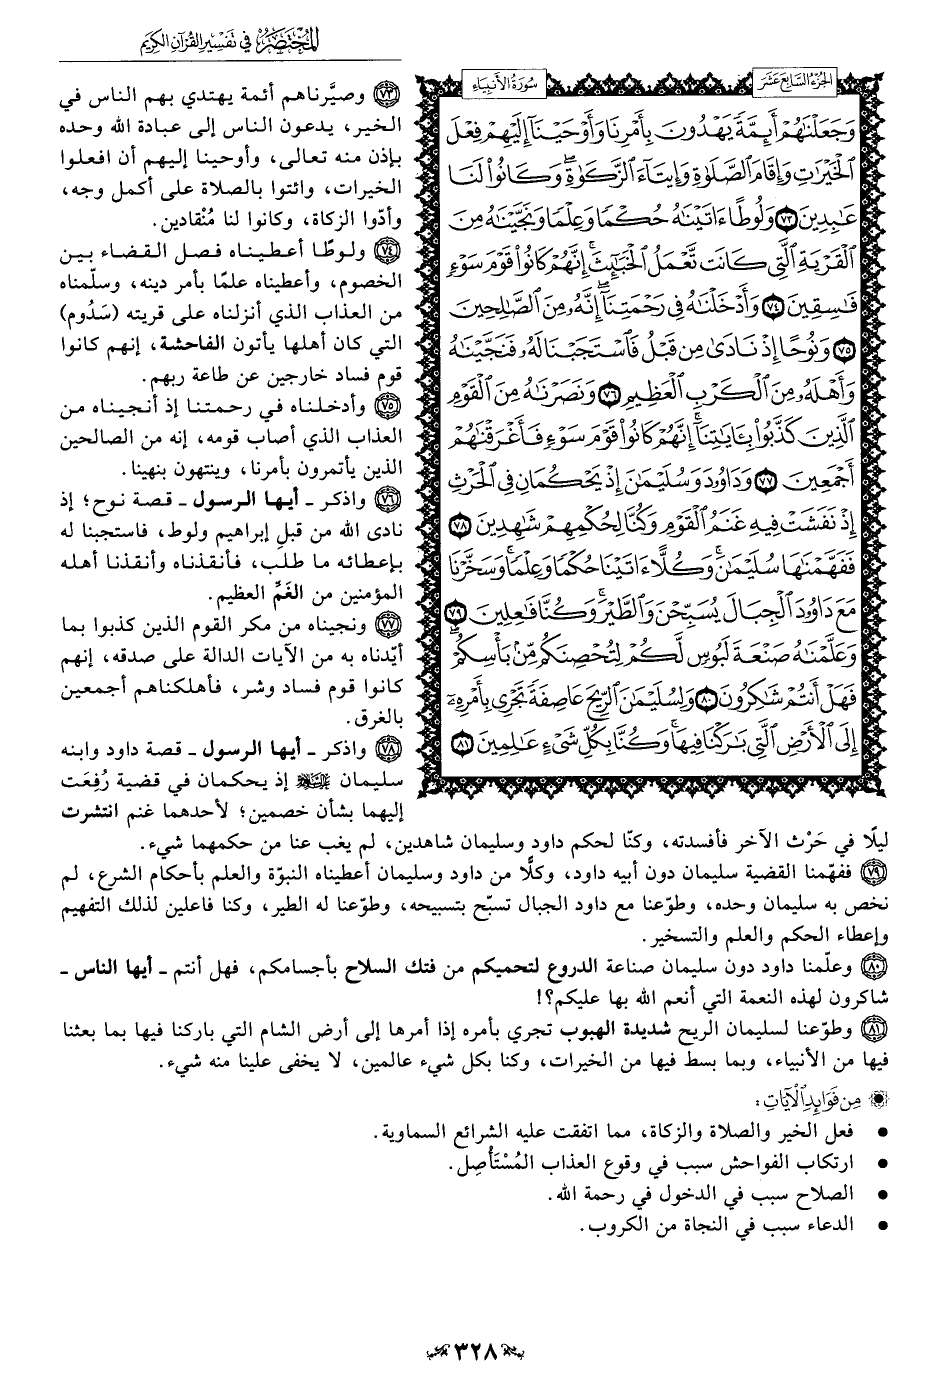 المختصر في تفسير القرآن الكريم
الجزء السابع عشر
سورة الأنبياء
وَجَعَلْنَٰهُمْ أَئِمَّةً يَهْدُونَ بِأَمْرِنَا وَأَوْحَيْنَآ إِلَيْهِمْ فِعْلَ
ٱلْخَيْرَٰتِ وَإِقَامَ ٱلصَّلَوٰةِ وَإِيتَآءَ ٱلزَّكَوٰةِۖ وَكَانُوا۟ لَنَا
عَٰبِدِينَ ٧٣ وَلُوطًا ءَاتَيْنَٰهُ حُكْمًا وَعِلْمًا وَنَجَّيْنَٰهُ مِنَ
ٱلْقَرْيَةِ ٱلَّتِى كَانَت تَّعْمَلُ ٱلْخَبَٰٓئِثَۚ إِنَّهُمْ كَانُوا۟ قَوْمَ سَوْءٍ
فَٰسِقِينَ ٧٤ وَأَدْخَلْنَٰهُ فِى رَحْمَتِنَآۖ إِنَّهُۥ مِنَ ٱلصَّٰلِحِينَ
٧٥ وَنُوحًا إِذْ نَادَىٰ مِن قَبْلُ فَٱسْتَجَبْنَا لَهُۥ فَنَجَّيْنَٰهُ
وَأَهْلَهُۥ مِنَ ٱلْكَرْبِ ٱلْعَظِيمِ ٧٦ وَنَصَرْنَٰهُ مِنَ ٱلْقَوْمِ
ٱلَّذِينَ كَذَّبُوا۟ بِـَٔايَٰتِنَآۚ إِنَّهُمْ كَانُوا۟ قَوْمَ سَوْءٍ فَأَغْرَقْنَٰهُمْ
أَجْمَعِينَ ٧٧ وَدَاوُۥدَ وَسُلَيْمَٰنَ إِذْ يَحْكُمَانِ فِى ٱلْحَرْثِ
إِذْ نَفَشَتْ فِيهِ غَنَمُ ٱلْقَوْمِ وَكُنَّا لِحُكْمِهِمْ شَٰهِدِينَ ٧٨
فَفَهَّمْنَٰهَا سُلَيْمَٰنَۚ وَكُلًّا ءَاتَيْنَا حُكْمًا وَعِلْمًاۚ وَسَخَّرْنَا
مَعَ دَاوُۥدَ ٱلْجِبَالَ يُسَبِّحْنَ وَٱلطَّيْرَۚ وَكُنَّا فَٰعِلِينَ ٧٩
وَعَلَّمْنَٰهُ صَنْعَةَ لَبُوسٍ لَّكُمْ لِتُحْصِنَكُم مِّنۢ بَأْسِكُمْۖ
فَهَلْ أَنتُمْ شَٰكِرُونَ ٨٠ وَلِسُلَيْمَٰنَ ٱلرِّيحَ عَاصِفَةً تَجْرِى بِأَمْرِهِۦٓ
إِلَى ٱلْأَرْضِ ٱلَّتِى بَٰرَكْنَا فِيهَاۚ وَكُنَّا بِكُلِّ شَىْءٍ عَٰلِمِينَ ٨١
٧٣ وصيَّرناهم أئمة يهتدي بهم الناس في
الخير، يدعون الناس إلى عبادة الله وحده
بإذن منه تعالى، وأوحينا إليهم أن افعلوا
الخيرات، وائتوا بالصلاة على أكمل وجه،
وأدّوا الزكاة، وكانوا لنا مُنْقادين.
٧٤ ولوطًا أعطيناه فصل القضاء بين
الخصوم، وأعطيناه علمًا بأمر دينه، وسلّمناه
من العذاب الذي أنزلناه على قريته (سَدُوم)
التي كان أهلها يأتون الفاحشة، إنهم كانوا
قوم فساد خارجين عن طاعة ربهم.
٧٥ وأدخلناه في رحمتنا إذ أنجيناه من
العذاب الذي أصاب قومه، إنه من الصالحين
الذين يأتمرون بأمرنا، وينتهون بنهينا.
٧٦ واذكر ـ أيها الرسول ـ قصة نوح؛ إذ
نادى الله من قبلِ إبراهيم ولوط، فاستجبنا له
بإعطائه ما طلب، فأنقذناه وأنقذنا أهله
المؤمنين من الغَمِّ العظيم.
٧٧ ونجيناه من مكر القوم الذين كذبوا بما
أيّدناه به من الآيات الدالة على صدقه، إنهم
كانوا قوم فساد وشر، فأهلكناهم أجمعين
بالغرق.
٧٨ واذكر ـ أيها الرسول ـ قصة داود وابنه
سليمان عليهما السلام إذ يحكمان في قضية رُفِعَت
إليهما بشأن خصمين؛ لأحدهما غنم انتشرت
ليلًا في حَرْث الآخر فأفسدته، وكنّا لحكم داود وسليمان شاهدين، لم يغب عنا من حكمهما شيء.
٧٩ ففهّمنا القضية سليمان دون أبيه داود، وكلًّا من داود وسليمان أعطيناه النبوّة والعلم بأحكام الشرع، لم
نخص به سليمان وحده، وطوّعنا مع داود الجبال تسبّح بتسبيحه، وطوّعنا له الطير، وكنا فاعلين لذلك التفهيم
وإعطاء الحكم والعلم والتسخير.
٨٠ وعلّمنا داود دون سليمان صناعة الدروع لتحميكم من فتك السلاح بأجسامكم، فهل أنتم ـ أيها الناس ـ
شاكرون لهذه النعمة التي أنعم الله بها عليكم؟!
٨١ وطوّعنا لسليمان الريح شديدة الهبوب تجري بأمره إذا أمرها إلى أرض الشام التي باركنا فيها بما بعثنا
فيها من الأنبياء، وبما بسط فيها من الخيرات، وكنا بكل شيء عالمين، لا يخفى علينا منه شيء.
من فوائد الآيات:
● فعل الخير والصلاة والزكاة، مما اتفقت عليه الشرائع السماوية.
● ارتكاب الفواحش سبب في وقوع العذاب المُسْتَأْصِل.
● الصلاح سبب في الدخول في رحمة الله.
● الدعاء سبب في النجاة من الكروب.
٣٢٨